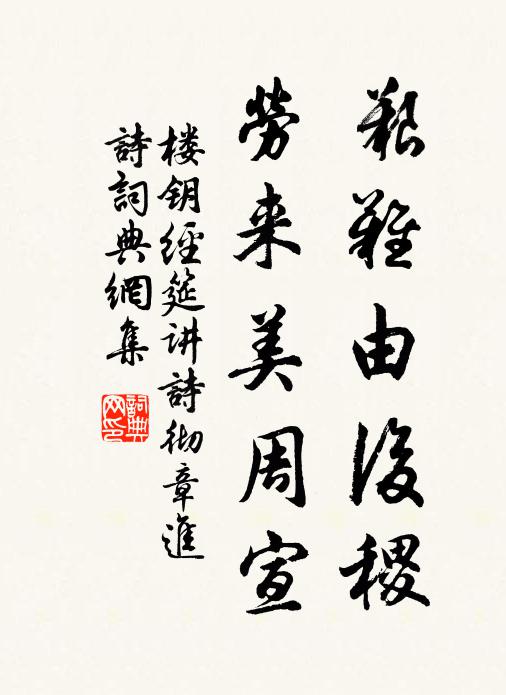 艱難由後稷
勞来美周宣
楼钥經筵讲詩彻章進
詩詞典網集
詞典网印